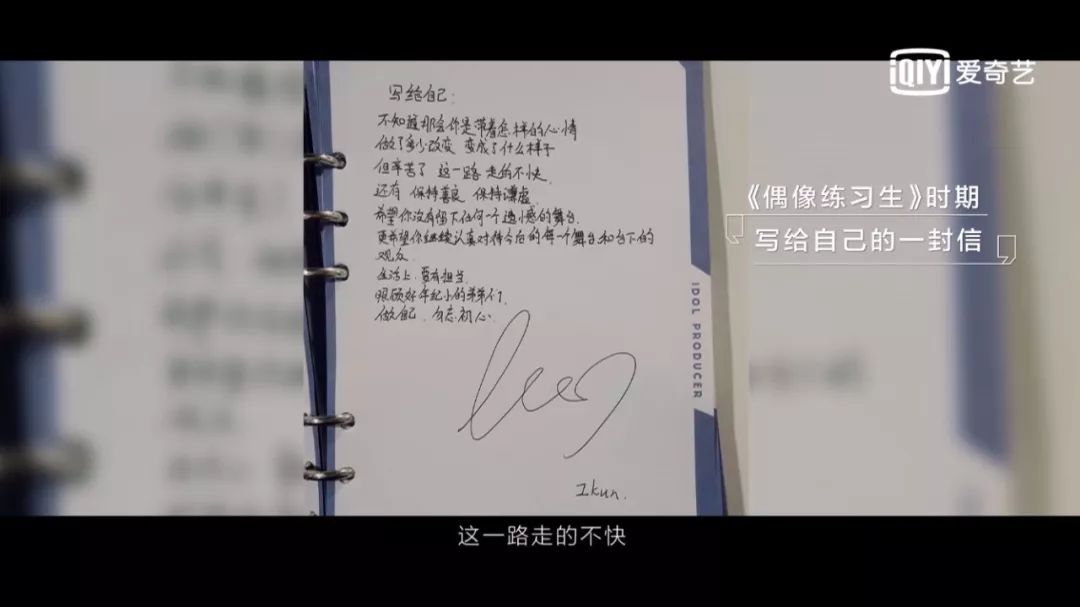 iQIYI 爱奇艺
写给自己：
不知道那会你是带着怎样的心情
做了多少改变 变成了什么样子
但辛苦了 这一路 走的不快.
还有 保持善良 保持谦虚.
希望你没有留下任何一个遗憾的舞台.
更希望你继续认真对待今后的每一个舞台和台下的
观众.
生活上.要有担当.
照顾好年纪小的弟弟们.
做自己.勿忘初心.
Ikun.
IDOL PRODUCER
《偶像练习生》时期
写给自己的一封信
这一路走的不快